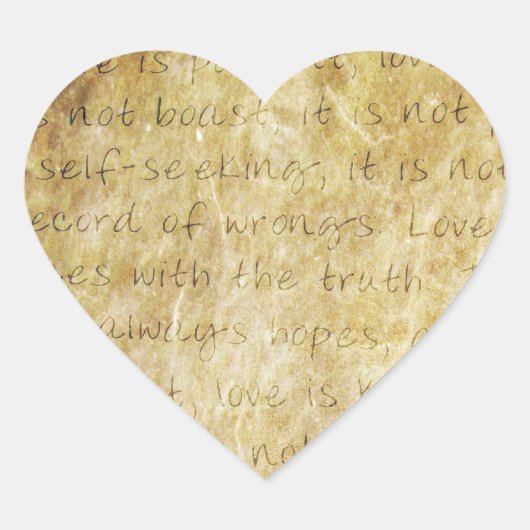 is pa t, lov
s not boast, it is not
self-seeking, it is not
ecord of wrongs. Love
es with the truth
always hopes,
t, love is k
no